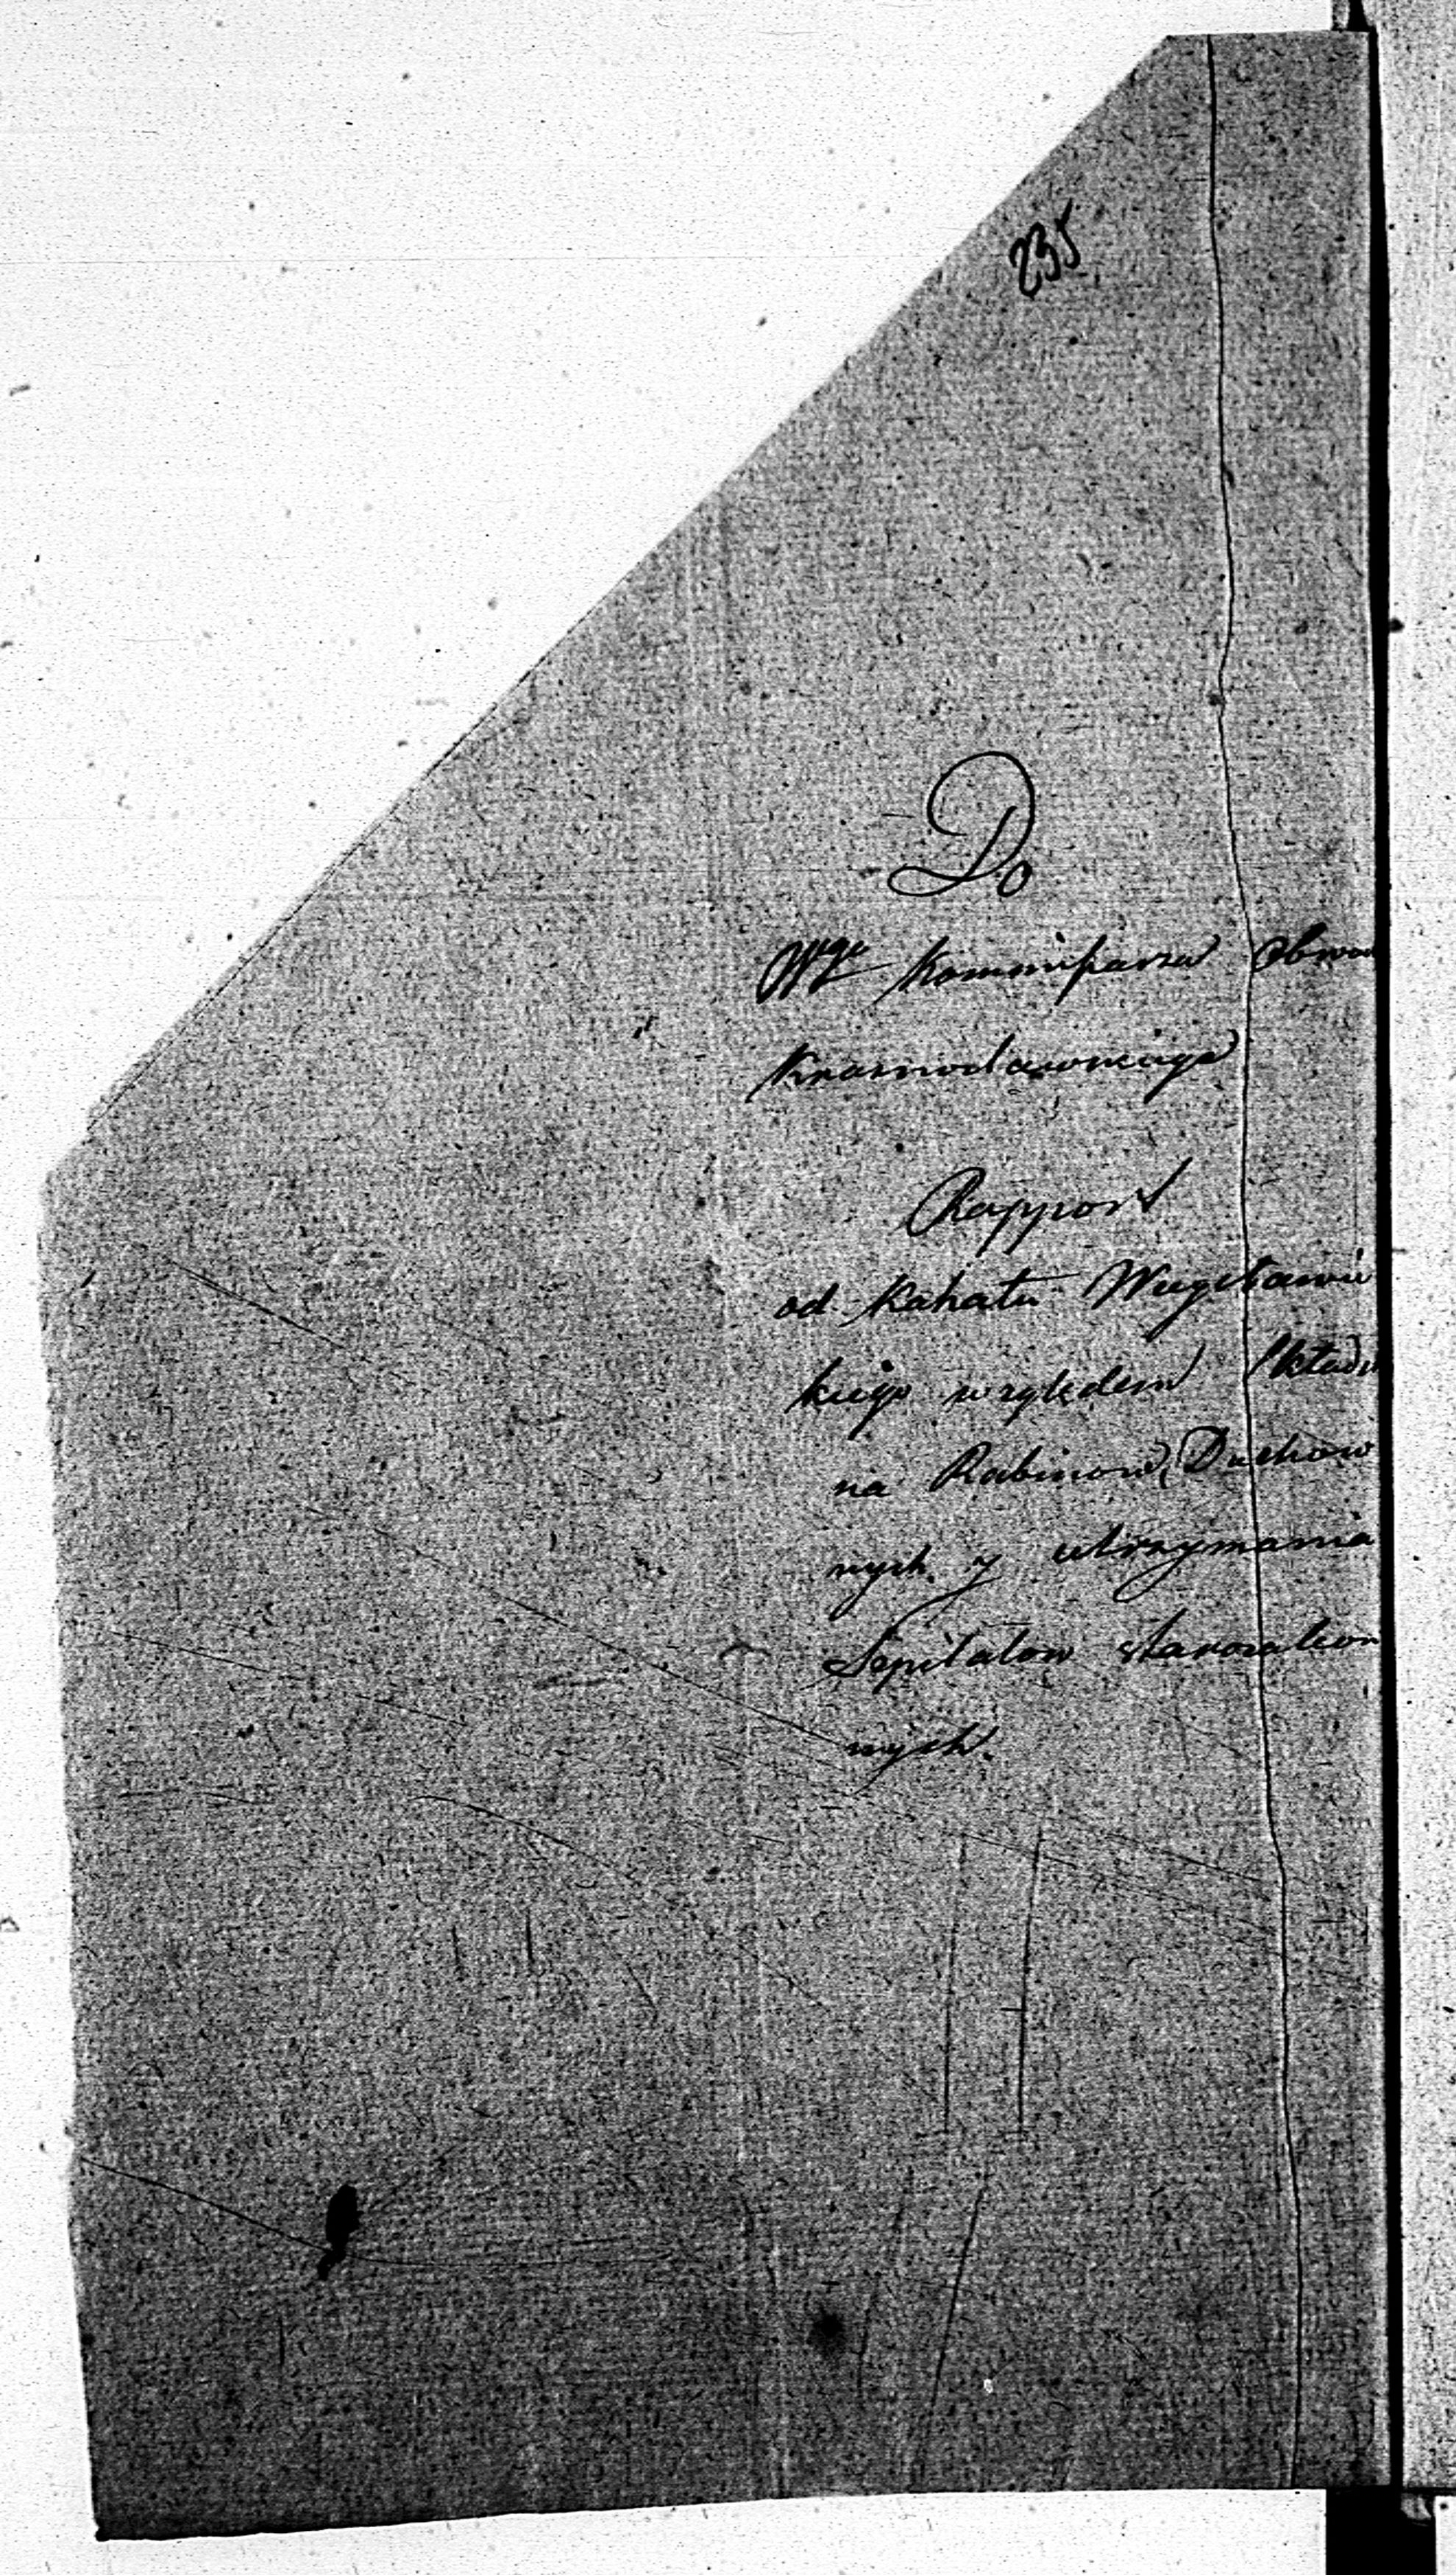 235
Do
Wgo Kommissarza Obwo
Krasnostawskiego
Rapport
od Kahału
kiego wzgledem Składu
na Rabinow, Duchow
nych y utrzymania
Szpitalow starozakon
nych.